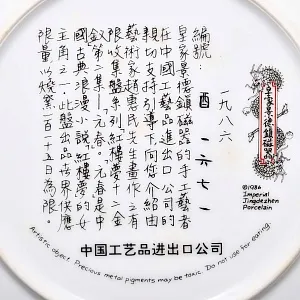 編號：
一九八六
酉 一六七一
皇家景德鎮磁器的手工藝者
在中國工藝品進出口公司的
親切支持引導下向你介紹由
藝術家趙惠民先生畫作之有
限收集盤系列紅樓夢十二金
釵第二集—元春。元春是中
國古典浪漫小說紅樓夢的女
主角之一。此盤出品世界供應
限量以燒窯一百十五日為限。
皇家景德鎮磁器
©1986
Imperial
Jingdezhen
Porcelain
Artistic object. Precious metal pigments may be toxic. Do not use for eating.
中国工艺品进出口公司